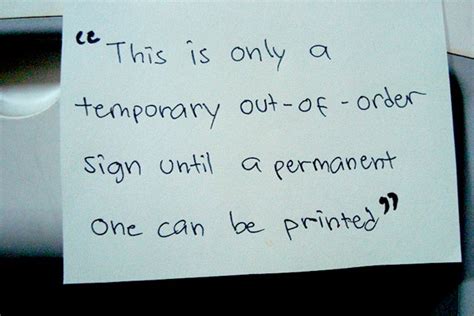 “This is only a
temporary out-of-order
sign until a permanent
one can be printed”